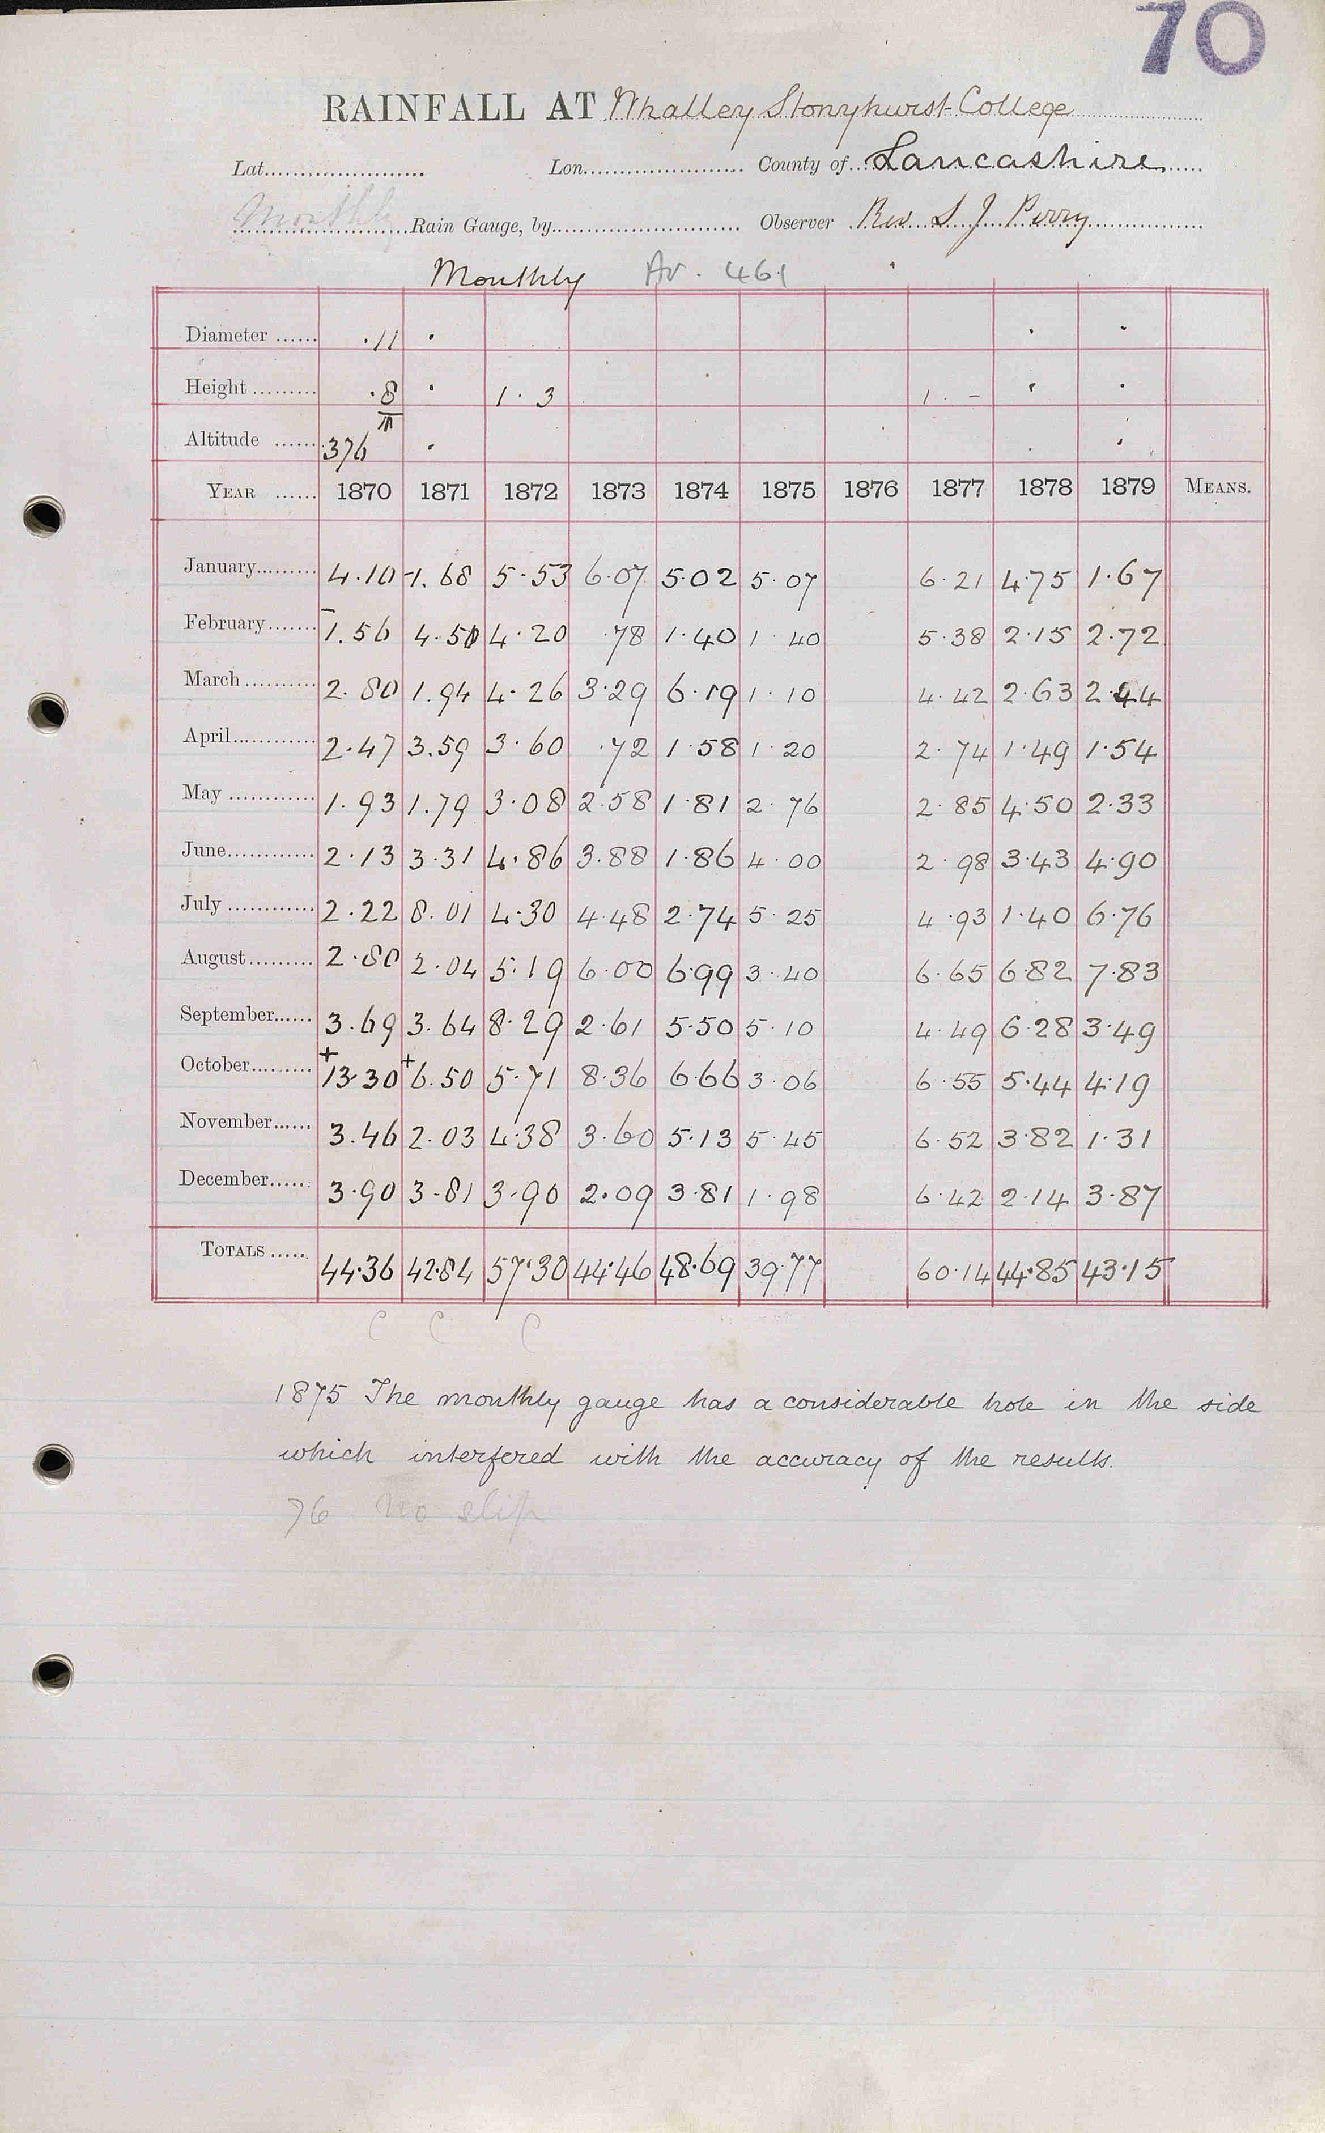 70
RAINFALL AT Whalley Stonyhurst College
Lat. Lon. County of Lancashire
Monthly Rain Gauge, by Observer Rev. S J Perry
Monthly Av. 461
Diameter ·11
Height ·8 1·3 1·-
Altitude 376
YEAR 1870 1871 1872 1873 1874 1875 1876 1877 1878 1879 MEANS.
January 4·10 1.68 5·53 6·07 5·02 5·07 6·21 4·75 1·67
February 1.56 4.50 4·20 ·78 1·40 1·40 5·38 2·15 2·72
March 2.80 1.94 4·26 3·29 6·19 1·10 4·42 2·63 2·44
April 2·47 3.59 3·60 ·72 1·58 1·20 2·74 1·49 1·54
May 1.93 1.79 3·08 2·58 1·81 2·76 2·85 4·50 2·33
June 2·13 3.31 4·86 3·88 1·86 4·00 2·98 3·43 4·90
July 2.22 8.01 4·30 4·48 2·74 5·25 4·93 1·40 6·76
August 2·80 2.04 5·19 6·00 6·99 3·40 6·65 6·82 7·83
September 3.69 3.64 8·29 2·61 5·50 5·10 4·49 6·28 3·49
October +13·30 +6.50 5·71 8·36 6·66 3·06 6·55 5·44 4·19
November 3.46 2.03 4·38 3·60 5·13 5·45 6·52 3·82 1·31
December 3·90 3·81 3·90 2·09 3·81 1·98 6·42 2·14 3·87
TOTALS 44·36 42·84 57·30 44·46 48·69 39·77 60·14 44·85 43·15
C C C
1875 The monthly gauge has a considerable hole in the side
which interfered with the accuracy of the results.
76 No slip